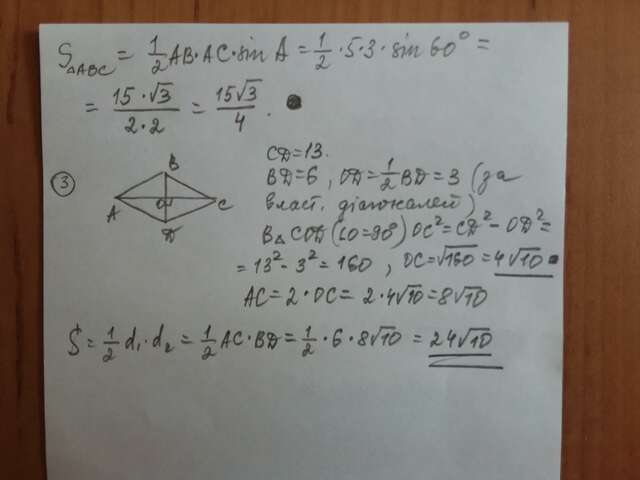 S△ABC = 1/2 AB·AC·sin A = 1/2 ·5·3·sin 60° =
= 15·√3 / 2·2 = 15√3 / 4 .
③
B
A
O
C
D
CD=13.
BD=6, OD=1/2 BD=3 (за
власт. діагоналей)
В△COD (∠O=90°) OC²=CD²-OD²=
=13²-3²=160, OC=√160=4√10
AC=2·OC=2·4√10=8√10
S=1/2 d₁·d₂=1/2 AC·BD=1/2·6·8√10=24√10